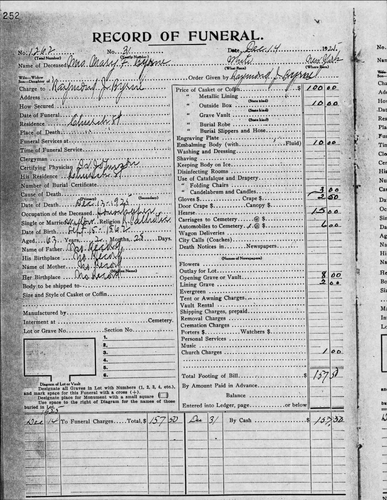 252
RECORD OF FUNERAL.
No. 1262 Date, Dec. 14 192
Name of Deceased Mrs. Mary Byrne White
Charge to Raymond J. Byrne Order Given by Raymond J. Byrne
Address
How Secured
Date of Funeral
Residence Church St
Place of Death
Funeral Services at
Time of Funeral Service
Clergyman
Certifying Physician Dr. Johnson
His Residence Church St
Number of Burial Certificate
Cause of Death
Date of Death Dec. 12 - 192
Occupation of the Deceased Housekeeper
Single or Married Religion Catholic
Date of Birth Sept. 15 - 1862
Aged Years Months 28 Days
Name of Father No Record
His Birthplace No Record
Name of Mother No Record
Her Birthplace No Record
Body to be shipped to
Size and Style of Casket or Coffin
Manufactured by
Interment at Cemetery
Lot or Grave No. Section No.
1.
2.
3.
4.
5.
6.
7.
Diagram of Lot or Vault
Designate all Graves in Lot with Numbers (1, 2, 3, 4, etc.), and mark space for this Funeral with a cross (+).
Designate place for Monument with a small square
Use space to right of Diagram for the names of those buried in Lot.
Price of Casket or Coffin $ 100 00
" Metallic Lining
" Outside Box 10 00
" Grave Vault
" Burial Robe
" Burial Slippers and Hose
Engraving Plate
Embalming Body (with Fluid) 10 00
Washing and Dressing
Shaving
Keeping Body on Ice
Disinfecting Rooms
Use of Catafalque and Drapery
" Folding Chairs
" Candelabrum and Candles 3 00
Gloves $ 2 50
Door Crape $ Canopy $
Hearse 15 00
Carriages to Cemetery @ $
Automobiles to Cemetery 1 @ $ 6 00
Wagon Deliveries
City Calls (Coaches)
Death Notices in Newspapers
Flowers
Outlay for Lot
Opening Grave or Vault 8 00
Lining Grave 2 00
Evergreen
Tent or Awning Charges
Vault Rental
Shipping Charges, prepaid
Removal Charges
Cremation Charges
Porters $ Watchers $
Personal Services
Music
Church Charges 1 00
Total Footing of Bill $ 157 50
By Amount Paid in Advance
Balance
Entered into Ledger, page or below
Dec 14 To Funeral Charges Total, $ 157 50 Dec 31 By Cash $ 157 50